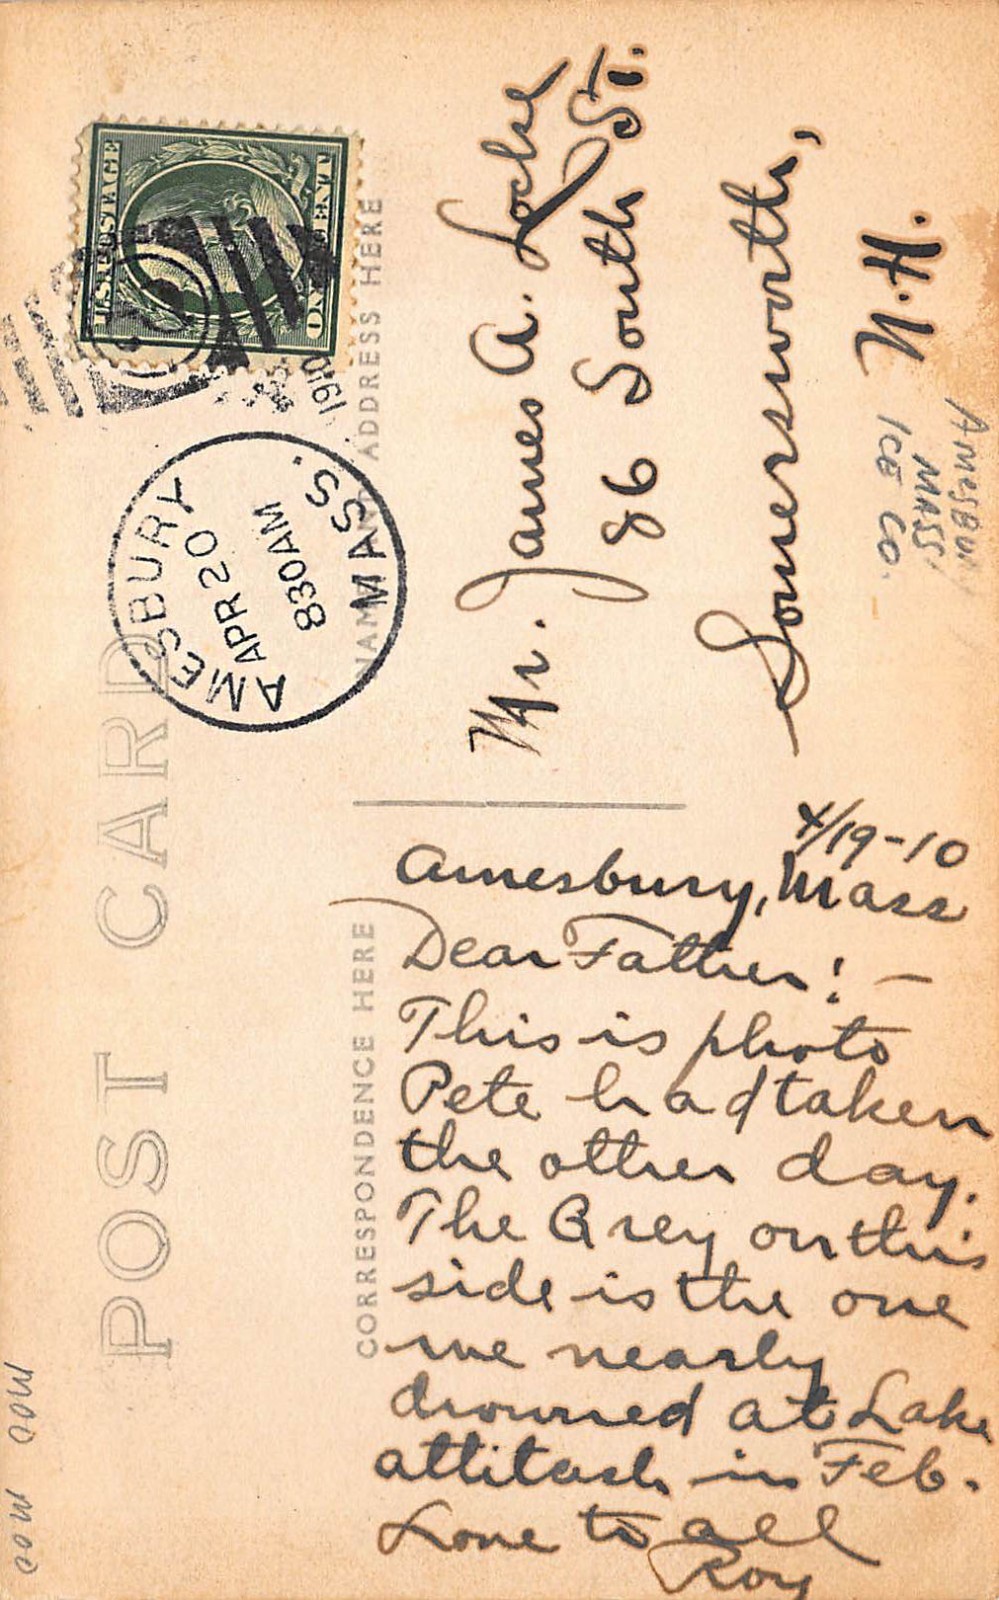 POST CARD
CORRESPONDENCE HERE
NAME AND ADDRESS HERE
U.S. POSTAGE
ONE CENT
AMESBURY
APR 20
830 AM
MASS.
1910
Mr. James A. Locke
86 South St.
Somersworth,
N.H.
Amesbury
MASS
ICE Co.
4/19-10
Amesbury, Mass
Dear Father! —
This is photo
Pete had taken
the other day.
The Grey on this
side is the one
we nearly
drowned at Lake
attitash in Feb.
Love to all
Roy